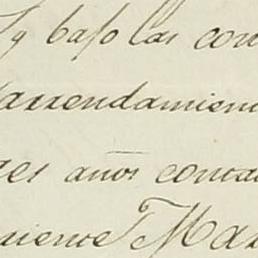 y bajo las con
arrendamien
res años conta
miento Mar